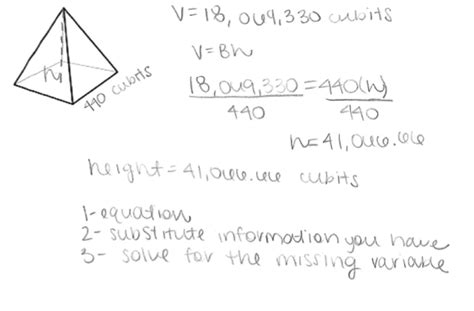 V=18,069,330 cubits
V=Bh
h
440 cubits
18,069,330=440(h)
440 440
h=41,066.66
height=41,066.66 cubits
1-equation
2- substitute information you have
3- solve for the missing variable